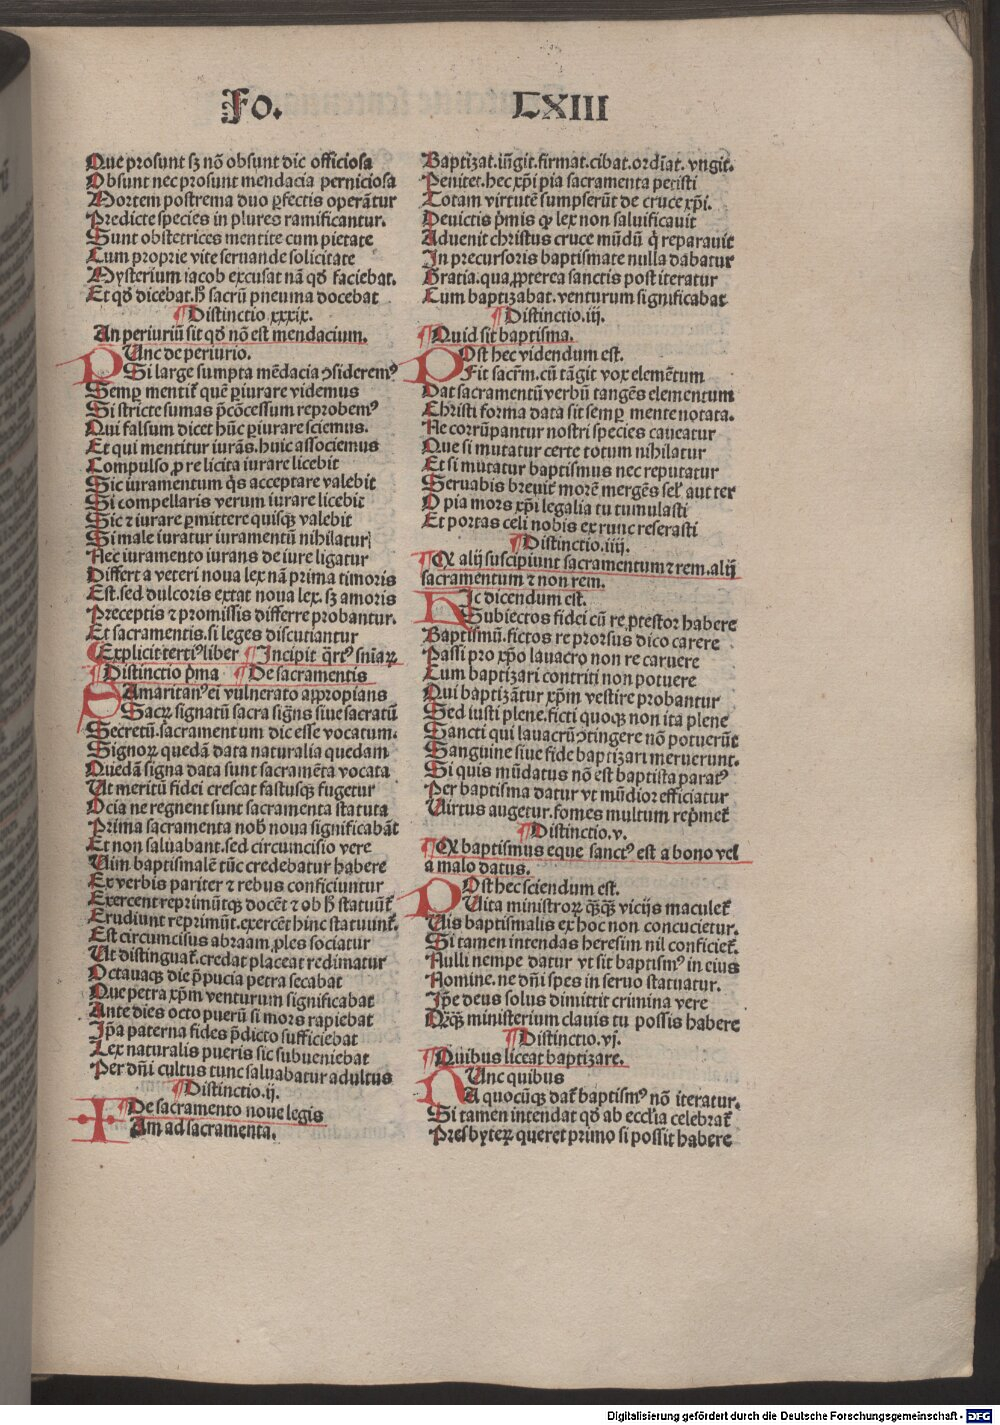 Fo. CXIII
Que prosunt sꝫ nõ obsunt dic officiosa
Obsunt nec prosunt mendacia perniciosa
Mortem postrema duo ꝑfectis operãtur
Predicte species in plures ramificantur.
Sunt obstetrices mentite cum pietate
Cum proprie vite seruande solicitate
Mysterium iacob excusat nã qđ faciebat.
Et qđ dicebat. h̄ sacrũ pneuma docebat
¶ Distinctio .xxxix.
An periuriũ sit qđ nõ est mendacium.
NUnc de periurio.
Si large sumpta mẽdacia ꝯsideremꝰ
Semꝑ mentit̃ quẽ ꝑiurare videmus
Si stricte sumas p̃cõcessum reprobemꝰ
Qui falsum dicet hũc ꝑiurare sciemus.
Et qui mentitur iurãs. huic associemus
Compulso ꝓ re licita iurare licebit
Sic iuramentum q̃s acceptare valebit
Si compellaris verum iurare licebit
Sic ⁊ iurare ꝑmittere quisqꝫ valebit
Si male iuratur iuramentũ nihilatur
Nec iuramento iurans de iure ligatur
Differt a veteri noua lex nã prima timoris
Est. sed dulcoris extat noua lex. sꝫ amoris
Preceptis ⁊ promissis differre probantur.
Et sacramentis. si leges discutiantur
¶ Explicit tertiꝰ liber ¶ Incipit q̃rtꝰ sniaꝝ
¶ Distinctio p̃ma ¶ De sacramentis
SAmaritanꝰ ei vulnerato appropians
Sacꝝ signatũ sacra sigñs siue sacratũ
Secretũ. sacramentum dic esse vocatum.
Signoꝝ quedã data naturalia quedam
Quedã signa data sunt sacramẽta vocata
Ut meritũ fidei crescat fastusqꝫ fugetur
Ocia ne regnent sunt sacramenta statuta
Prima sacramenta nob̄ noua significabãt
Et non saluabant. sed circumcisio vere
Uim baptismalẽ tũc credebatur habere
Ex verbis pariter ⁊ rebus conficiuntur
Exercent reprimũtqꝫ docẽt ⁊ ob h̄ statuũt̃
Erudiunt reprimũt. exercẽt hinc statuunt̃.
Est circumcisus abraam ꝓles sociatur
Ut distinguat̃. credat placeat redimatur
Octauaqꝫ die p̃pucia petra secabat
Que petra xp̃m venturum significabat
Ante dies octo puerũ si mors rapiebat
Ip̃a paterna fides p̃dicto sufficiebat
Lex naturalis pueris sic subueniebat
Per dñi cultus tunc saluabatur adultus
¶ Distinctio .ij.
¶ De sacramento noue legis
IAm ad sacramenta.
Baptizat. iñgit. firmat. cibat. ordĩat. vngit.
Penitet. hec xp̃i pia sacramenta petisti
Totam virtutẽ sumpserũt de cruce xp̃i.
Deuictis p̃mis qꝫ lex non saluificauit
Aduenit christus cruce mũdũ q̃ reparauit
In precursoris baptismate nulla dabatur
Gratia. qua ꝓpterea sanctis post iteratur
Cum baptizabat. venturum significabat
¶ Distinctio .iij.
¶ Quid sit baptisma.
POst hec videndum est.
Fit sacr̃m. cũ tãgit vox elemẽtum
Dat sacramentũ verbũ tangẽs elementum
Christi forma data sit semꝑ mente notata.
Ne corrũpantur nostri species caueatur
Que si mutatur certe totum nihilatur
Et si mutatur baptismus nec reputatur
Seruabis breuit̃ morẽ mergẽs sel̃ aut ter
O pia mors xp̃i legalia tu tumulasti
Et portas celi nobis ex tunc reserasti
¶ Distinctio .iiij.
¶ Qꝫ alij suscipiunt sacramentum ⁊ rem. alij
sacramentum ⁊ non rem.
HIc dicendum est.
Subiectos fidei cũ re ꝓtestor habere
Baptismũ. fictos re prorsus dico carere
Passi pro xp̃o lauacro non re caruere
Cum baptizari contriti non potuere
Qui baptizãtur xp̃m vestire probantur
Sed iusti plene. ficti quoqꝫ non ita plene
Sancti qui lauacrũ ꝯtingere nõ potuerũt
Sanguine siue fide baptizari meruerunt.
Si quis mũdatus nõ est baptista paratꝰ
Per baptisma datur vt mũdior efficiatur
Uirtus augetur. fomes multum rep̃met̃
¶ Distinctio .v.
¶ Qꝫ baptismus eque sanctꝰ est a bono vel
a malo datus.
POst hec sciendum est.
Uita ministroꝝ q̃qꝫ vicijs maculet̃
Uis baptismalis ex hoc non concucietur.
Si tamen intendas heresim nil conficiet̃.
Nulli nempe datur vt sit baptismꝰ in eius
Nomine. ne dñi spes in seruo statuatur.
Ip̃e deus solus dimittit crimina vere
Q̃qꝫ ministerium clauis tu possis habere
¶ Distinctio .vj.
¶ Quibus liceat baptizare.
NUnc quibus
A quocũqꝫ dat̃ baptismꝰ nõ iteratur.
Si tamen intendat qđ ab eccl̃ia celebrat̃
Presbyteꝝ queret primo si possit habere
Digitalisierung gefördert durch die Deutsche Forschungsgemeinschaft - DFG